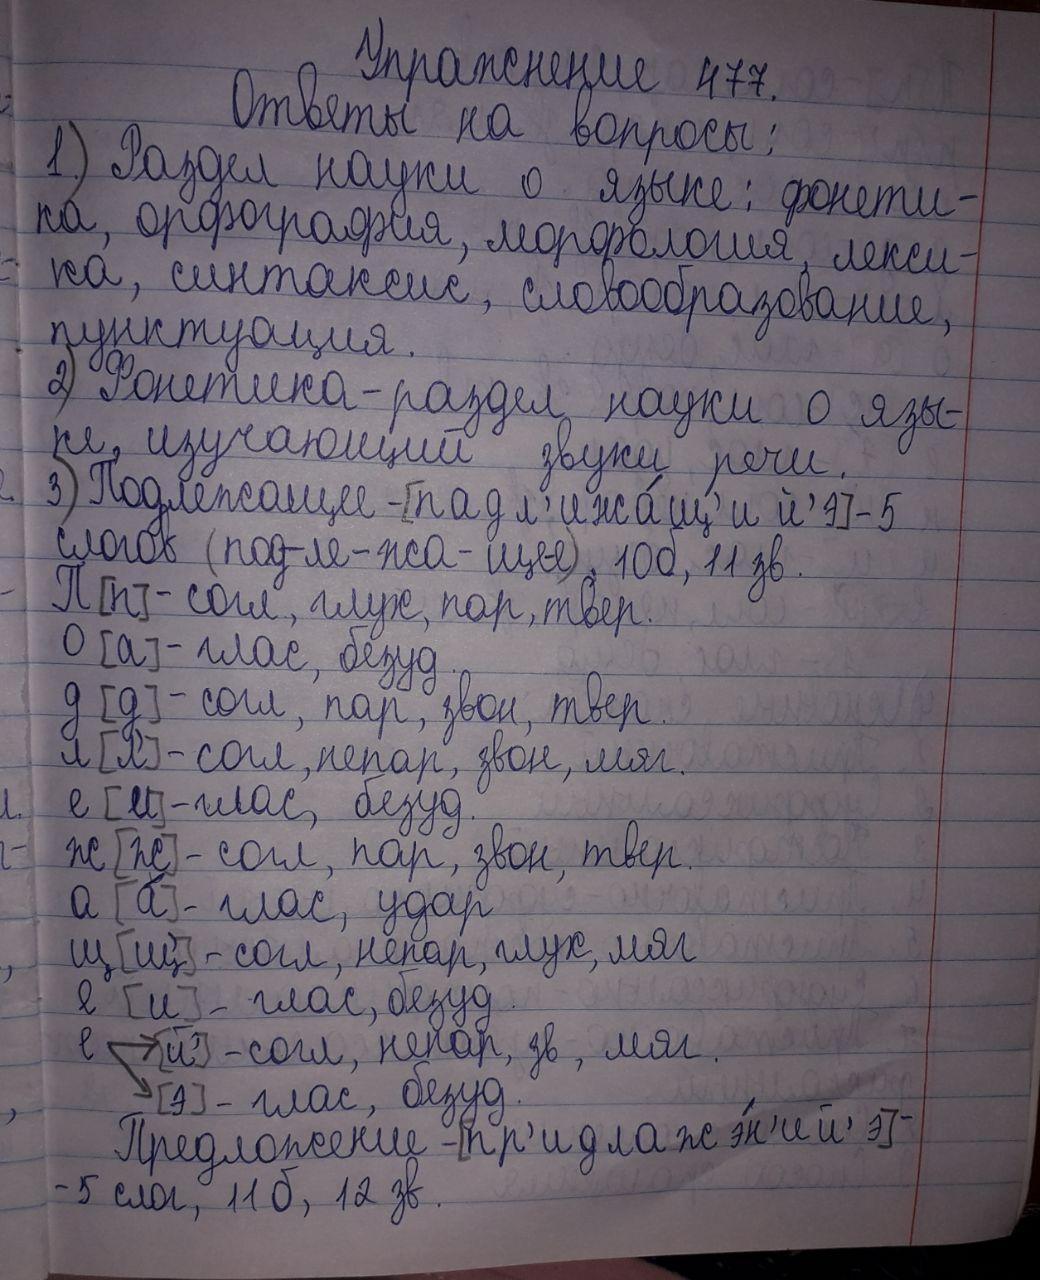 Упражнение 477.
Ответы на вопросы:
1.) Раздел науки о языке: фонети-
ка, орфография, морфология, лекси-
ка, синтаксис, словообразование,
пунктуация.
2) Фонетика-раздел науки о язы-
ке, изучающий звуки речи.
3) Подлежащее -[падл'ижа́щ'ий'э]-5
слогов (под-ле-жа-ще-е), 10б, 11 зв.
П[п]- согл, глух, пар, твер.
О [а]- глас, безуд.
д [д]- согл, пар, звон, твер.
л [л']- согл, непар, звон, мяг.
е [и]-глас, безуд.
ж [ж]- согл, пар, звон, твер.
а [а́]- глас, удар
щ[щ']- согл, непар, глух, мяг
е [и]- глас, безуд.
е [й']-согл, непар, зв, мяг.
[э]- глас, безуд.
Предложение -[пр'идлажэ́н'ий'э]-
-5 слог, 11б, 12 зв.